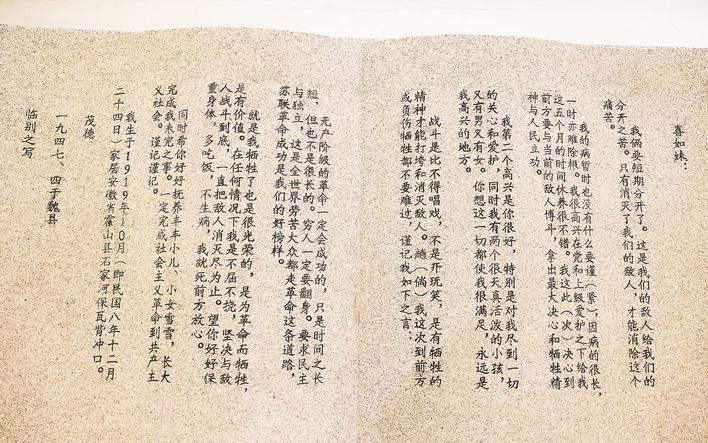 喜如妹：
我俩要短期分开了。这是我们的敌人给我们的
分开之苦。只有消灭了我们的敌人，才能消除这个
痛苦。
我的病暂时也没有什么要谨（紧），因病的很长，
一时亦难除根。我很高兴在党和上级爱护之下给我
这五个月的时间休养很不错。我这此（次）决心到
前方要与当前的敌人博斗，拿出最大决心和牺牲精
神与人民立功。
我第二个高兴是你很好，特别是对我尽到一切
的关心和爱护，同时我有两个很天真活泼的小孩，
又有男又有女。你想这一切都使我很满足，永远是
我高兴的地方。
战斗是比不得唱戏，不是开玩笑，是有牺牲的
精神才能打垮和消灭敌人。趟（倘）我这次到前方
或负伤牺牲都不要难过，谨记我如下之言：
无产阶级的革命一定会成功的，只是时间之长
短，但也不是很长的。穷人一定要翻身。要求民主
与独立，这是全世界劳苦大众都走革命这条道路，
苏联革命成功是我们的好榜样。
就是我牺牲了也是很光荣的，是为革命而牺牲，
是有价值。在任何情况下我是不屈不挠，坚决与敌
人战斗到底，一直把敌人消灭尽为止。望你好好保
重身体，多吃饭，不生病，我就死前方放心。
同时希你好好抚养丰丰小儿、小女雪雪，长大
完成我未完之事。一定完成社会主义革命到共产主
义社会。谨记谨记。
我生于1919年10月（即民国八年十二月
二十四日）家居安徽省霍山县石家河保瓦背冲口。
茂德
一九四七、四于魏县
临别之写